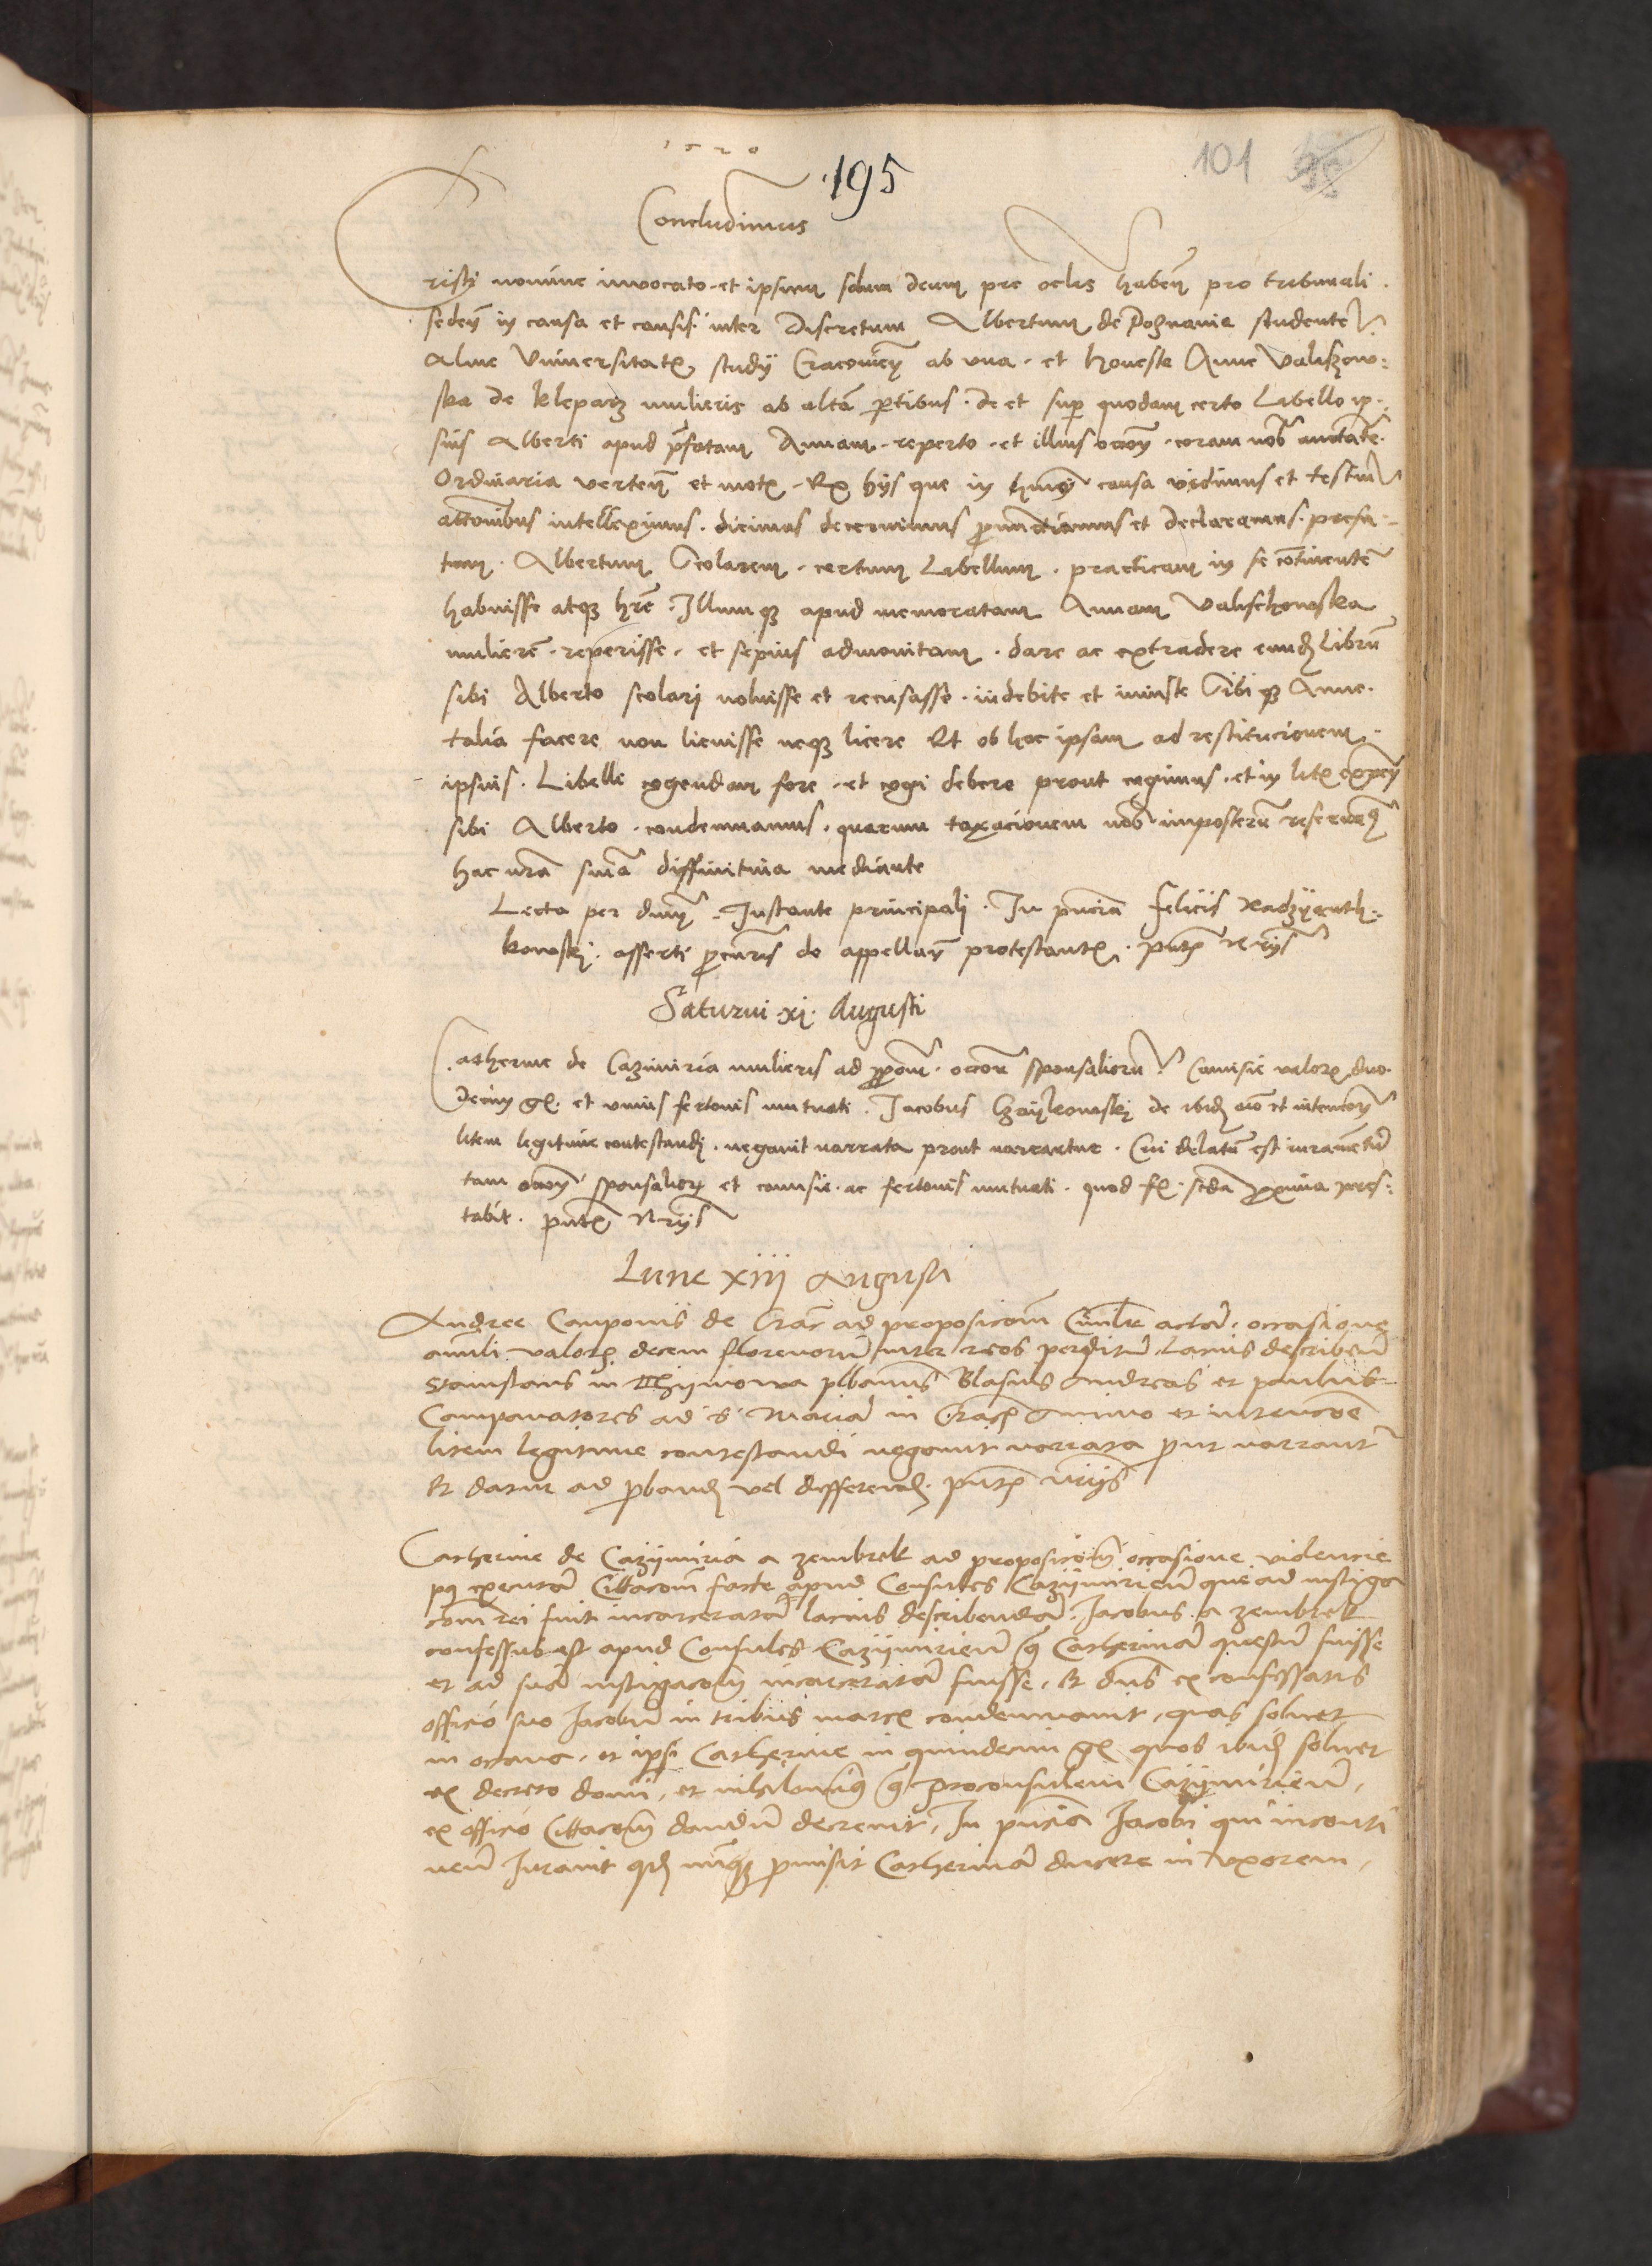 1520
195
101
Concludimus
Cristi nomine invocato et ipsum solum deum pre oclis haben pro tribunali
seden in causa et causis inter Discretum Albertum de Poznania studente
Alme Universitatis studij Cracovien ab una et honeste Anne Valiszow-
ska de Kleparz mulieris ab alta partibus de et super quodam certo Libello ip-
sius Alberti apud prefatam Annam reperto et illius occoe coram nob auctate
Ordinaria verten et motis Ex hijs que in hmoi causa vidimus et testium
attonibus intelleximus dicimus decernimus pronunctiamus et declaramus prefa-
tum Albertum Scolarem certum Libellum practicam in se continente
habuisse atque hre Illumque apud memoratam Annam Valischowska
muliere reperisse et sepius admonitam dare ac extradere eund Libru
sibi Alberto scolari noluisse et recusasse indebite et iniuste Sibique Anne
talia facere non licuisse neque licere Et ob hoc ipsam ad restitucionem
ipsius Libelli cogendam fore et cogi debere prout cogimus et in litis expen
sibi Alberto condemnamus quarum taxacionem nob imposteru reservamus
hac nra snia diffinitiva mediante
Lecta per dnum Instante principali In pncia Felicis
kowski asserti procuris de appellan protestantis pntibus Nrijs
Saturni xi Augusti
Catherine de Cazimiria mulieris ad ppom occoe sponsalioru Camisie valoris duo
decim gr et unius fertonis mutuati Jacobus Czaijkowski de ibid aio et intencoe
litem legitime contestandi negavit narrata prout narrantur Cui delatu est iuramentu
tam occoe sponsalior et camisie ac fertonis mutuati quod fr scda proxima pres-
tabit pntibus Nrijs
Lune xiii Augusti
Andree Camponis de Crac ad proposicom Civilr acta occasione
anuli valoris decem florenoru inter reos perditu Lacius describen
Stanislaus in plbanus Blasius Andreas et Paulus
Campanatores ad s Maria in Crac Animo et intencoe
litem legitime contestandi negavit narrata prout narrant
Et datur ad pband vel differend pntibus Nrijs
Catherine de Cazijmiria a zembrek ad proposicom occasione violencie
p executa Cittacom facte apud Consules Cazijmirien que ad instiga
com rei fuit incarcerata lacius describenda Jacobus a zembrek
confessus est apud Consules Cazijmirien Catherina questu fuisse
et ad sua instigacom incarcerata fuisse Et dns ex confessatis
officio suo Jacobu in tribus marcis condemnavit quas solvet
in octava et ipsi Catherine in quindecim gr quos ibid solvet
ex decreto domi et nihilominus Proconsulem Cazijmirien
ex officio Cittacom dandu decrevit In pncia Jacobi qui inconti
nen Juravit qd nunquam pmisit Catherina ducere in Uxorem